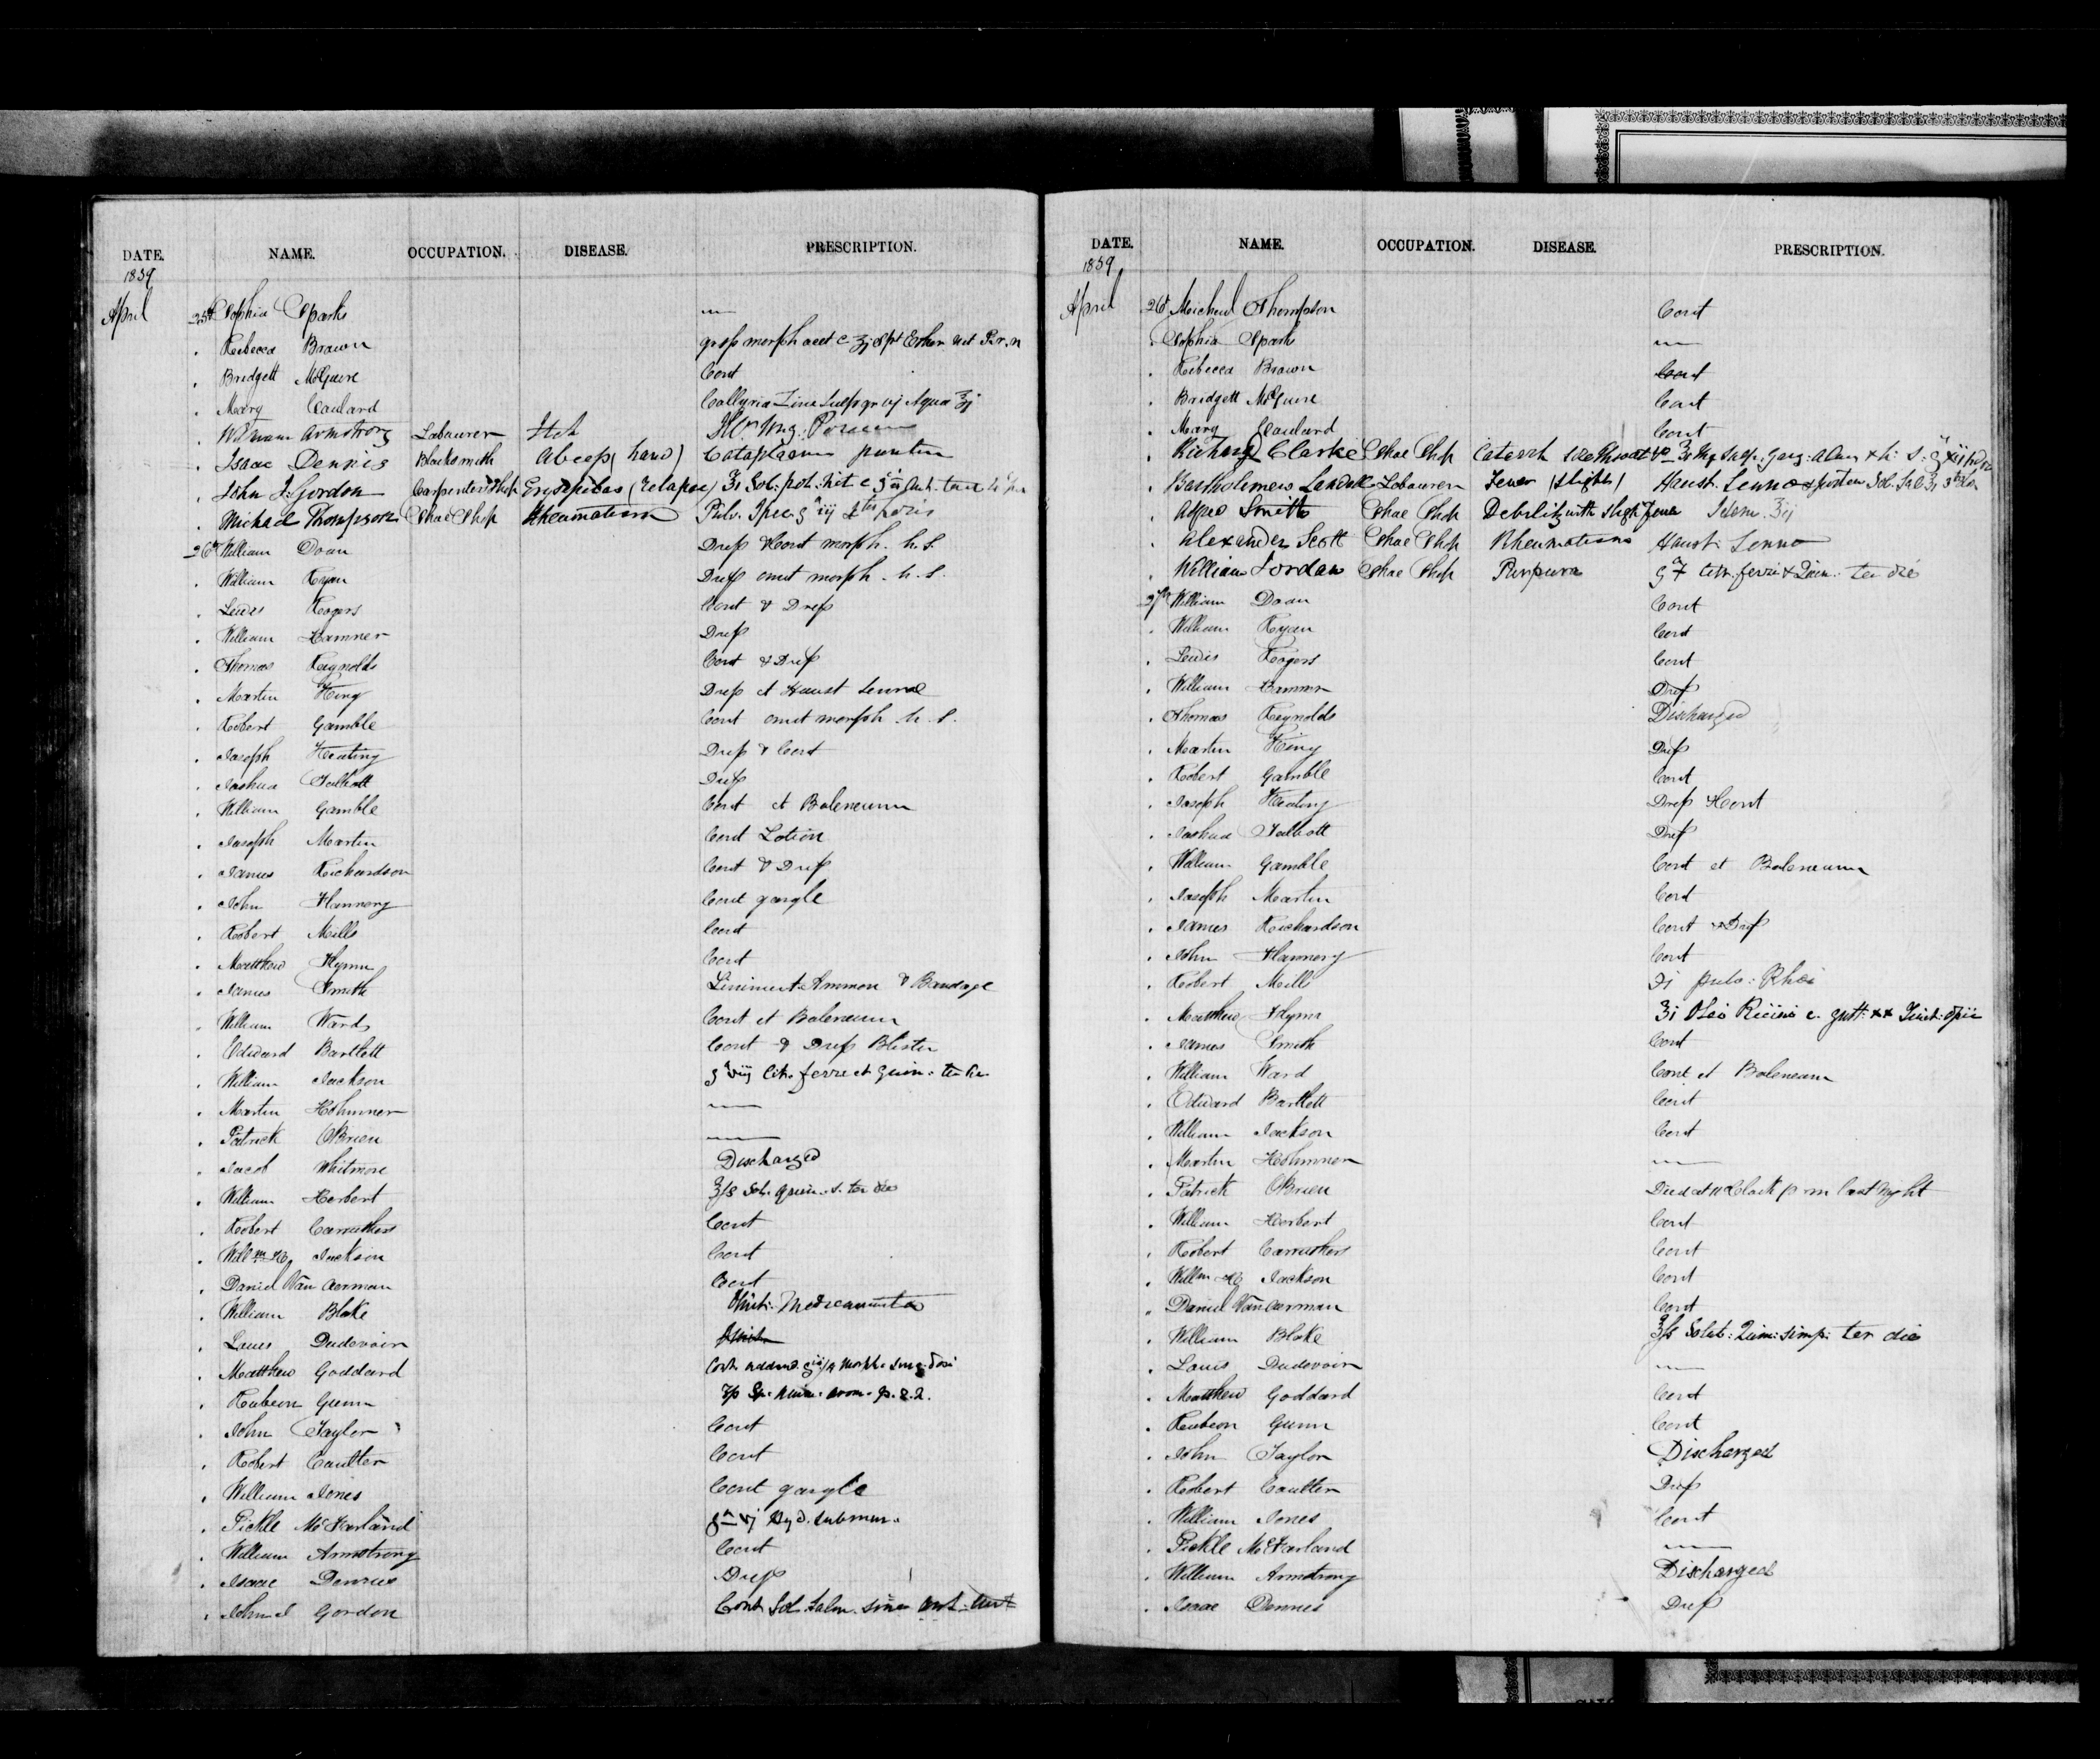 DATE. NAME. OCCUPATION. DISEASE. PRESCRIPTION.
1859
April 25th Sophia Sparks —
Rebecca Brown morph acet
Bridgett McGuire Cont
Mary Coulard Collyria Zinc Sulp gr vj Aqua ℥j
William Armstrong Labourer Itch
Isaac Dennis Blacksmith Abcess (hand) Cataplasma
John J. Gordon Carpenters Shop Erysipelas (relapse)
Michael Thompson Shoe Shop Rheumatism Pulv. Ipec.
26th William Doan Dress & Cont morph. h.s.
William Ryan Dress omit morph. h.s.
Lewis Rogers Cont & Dress
William Hamner Dress
Thomas Reynolds Cont & Dress
Martin King Dress et Haust Sennae
Robert Gamble Cont omit morph h.s.
Joseph Keating Dress & Cont
Joshua Talbott Dress
William Gamble Cont et Baleneum
Joseph Martin Cont Lotion
James Richardson Cont & Dress
John Flannery Cont gargle
Robert Mills Cont
Matthew Flynn Cont
James Smith Liniment Ammon & Bandage
William Ward Cont et Baleneum
Edward Bartlett Cont & Dress Blister
William Jackson cit. ferri et quin. ter die
Martin Holmner —
Patrick O'Brien —
Jacob Whitmore Discharged
William Herbert ℥ss Sol. Quin. s. ter die
Robert Carruthers Cont
Willm Hy Jackson Cont
Daniel Van Aerman Cont
William Blake Omit. Medicamenta
Louis Dudevoir
Matthew Goddard Cont
Reubeen Gunn
John Taylor Cont
Robert Coulter Cont
William Jones Cont gargle
Pickle McFarland vj Hyd. submur.
William Armstrong Cont
Isaac Dennis Dress
John J Gordon Cont Sol. Salin. sine
DATE. NAME. OCCUPATION. DISEASE. PRESCRIPTION.
1859
April 26th Micheal Thompson Cont
Sophia Sparks —
Rebecca Brown Cont
Bridgett McGuire Cont
Mary Coulard Cont
Richard Clarke Shoe Shop Catarrh
Bartholemew Shoe Labourer Fever (slight) Haust. Senna
Smith Shoe Shop Debility with slight fever
Alexander Scott Shoe Shop Rheumatism Haust. Senna
William Jordan Shoe Shop Purpura citr. ferri & Quin. ter die
27th William Doan Cont
William Ryan Cont
Lewis Rogers Cont
William Hamner Dress
Thomas Reynolds Discharged
Martin King Dress
Robert Gamble Cont
Joseph Keating Dress & Cont
Joshua Talbott Dress
William Gamble Cont et Baleneum
Joseph Martin Cont
James Richardson Cont & Dress
John Flannery Cont
Robert Mills pulv. Rhei
Matthew Flynn ℥i Olei Ricini c. gutt. xx Tinct. Opii
James Smith Cont
William Ward Cont et Baleneum
Edward Bartlett Cont
William Jackson Cont
Martin Holmner —
Patrick O'Brien Died at 11 Clock p m last Night
William Herbert Cont
Robert Carruthers Cont
Willm Hy Jackson Cont
Daniel Van Aerman Cont
William Blake ℥ss Solut: Quin: simp: ter die
Louis Dudevoir —
Matthew Goddard Cont
Reubeon Gunn Cont
John Taylor Discharged
Robert Coulter Dress
William Jones Cont
Pickle McFarland —
William Armstrong Discharged
Isaac Dennis Dress